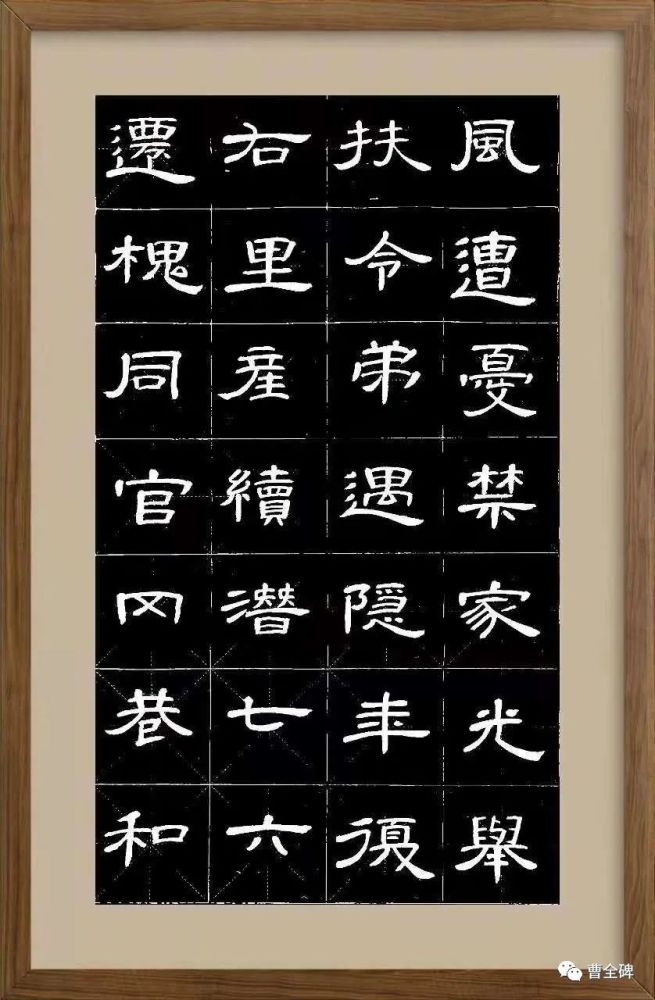 遷右扶風
槐里令遭
同產弟憂
官續遇禁
冈潛隱家
巷七年光
和六復舉
曹全碑